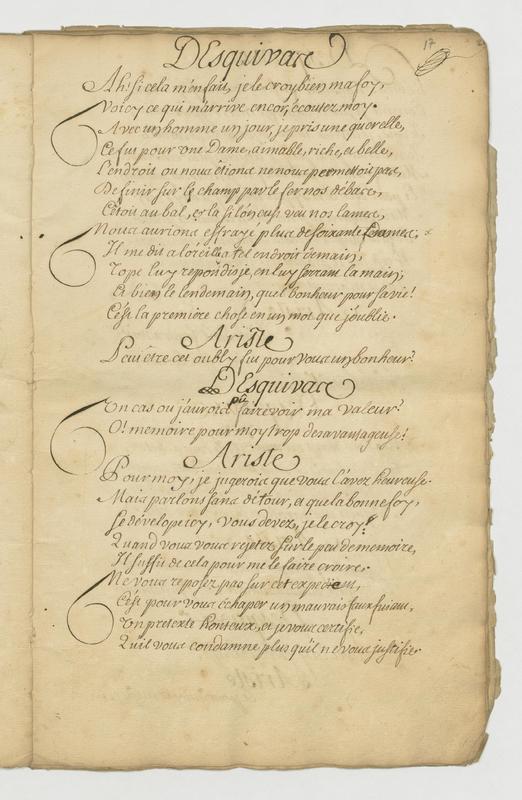 17
D'Esquivas
Ah! si cela m'enfait, je le croy bien ma foy,
Voicy ce qui m'arrive encor, écoutez moy.
Avec un homme un jour, je pris une querelle,
Ce fut pour une Dame, aimable, riche, et belle,
L'endroit ou nous êtions ne nous permettoit pas,
De finir sur le champ par le fer nos débats,
C'êtoit au bal, et la si l'on eut veu nos lames,
Nous aurions effrayé plus de soixante femmes,
Il me dit a loreille a tel endroit demain,
Tope luy repondis je, en luy serrant la main,
Et bien le lendemain, quel bonheur pour sa vie!
C'est la première chose en un mot que j'oublie.
Ariste
Peut être cet oubly fut pour vous un bonheur?
D'Esquivas
Un cas ou j'aurois pû faire voir ma valeur?
O! memoire pour moy trop desavantageuse!
Ariste
Pour moy, je jugerois que vous l'avez heureuse.
Mais parlons sans détour, et que la bonne foy,
Se dévelope icy, vous devez, je le croy?
Quand vous vous rejetez sur le peu de memoire,
Il suffit de cela pour me le faire croire.
Ne vous reposez pas sur cet expedient,
C'est pour vous échaper un mauvais faux fuiant,
Un pretexte honteux, et je vous certifie,
Qu'il vous condamne plus qu'il ne vous justifie.